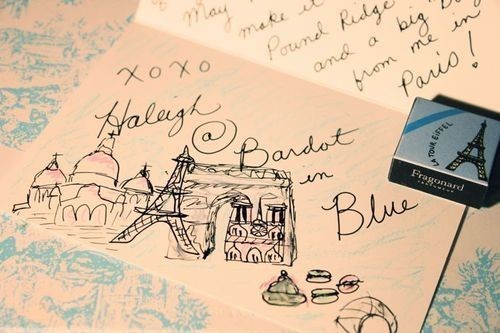 May
make it
Pound Ridge
and a big
from me in
Paris!
XOXO
Haleigh
@
Bardot
in
Blue
LA TOUR EIFFEL
Fragonard